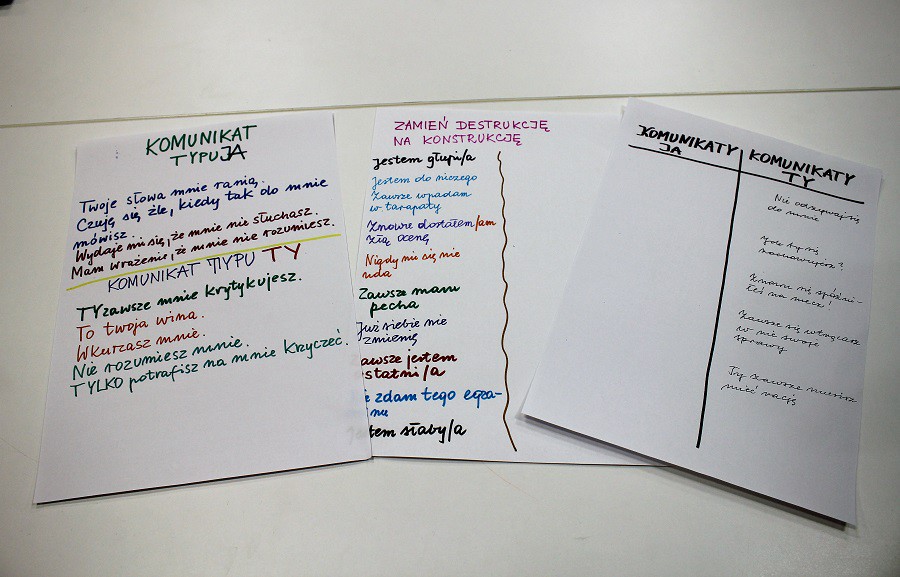 KOMUNIKAT
TYPU JA
Twoje słowa mnie ranią.
Czuję się źle, kiedy tak do mnie
mówisz.
Wydaje mi się, że mnie nie słuchasz.
Mam wrażenie, że mnie nie rozumiesz.
KOMUNIKAT TYPU TY
TY zawsze mnie krytykujesz.
To twoja wina.
Wkurzasz mnie.
Nie rozumiesz mnie.
TYLKO potrafisz na mnie krzyczeć.
ZAMIEŃ DESTRUKCJĘ
NA KONSTRUKCJĘ
Jestem głupi/a
Jestem do niczego
Zawsze wpadam
w tarapaty
Znowu dostałem/am
złą ocenę
Nigdy mi się nie
uda
Zawsze mam
pecha
Już siebie nie
zmienię
Zawsze jestem
ostatni/a
Nie zdam tego egza-
minu
Jestem słaby/a
KOMUNIKATY
JA
KOMUNIKATY
TY
Nie odzywaj się
do mnie
Jak ty się
zachowujesz?
Znowu się spóźni-
łeś na mecz!
Zawsze się wtrącasz
w nie swoje
sprawy
Ty zawsze musisz
mieć rację